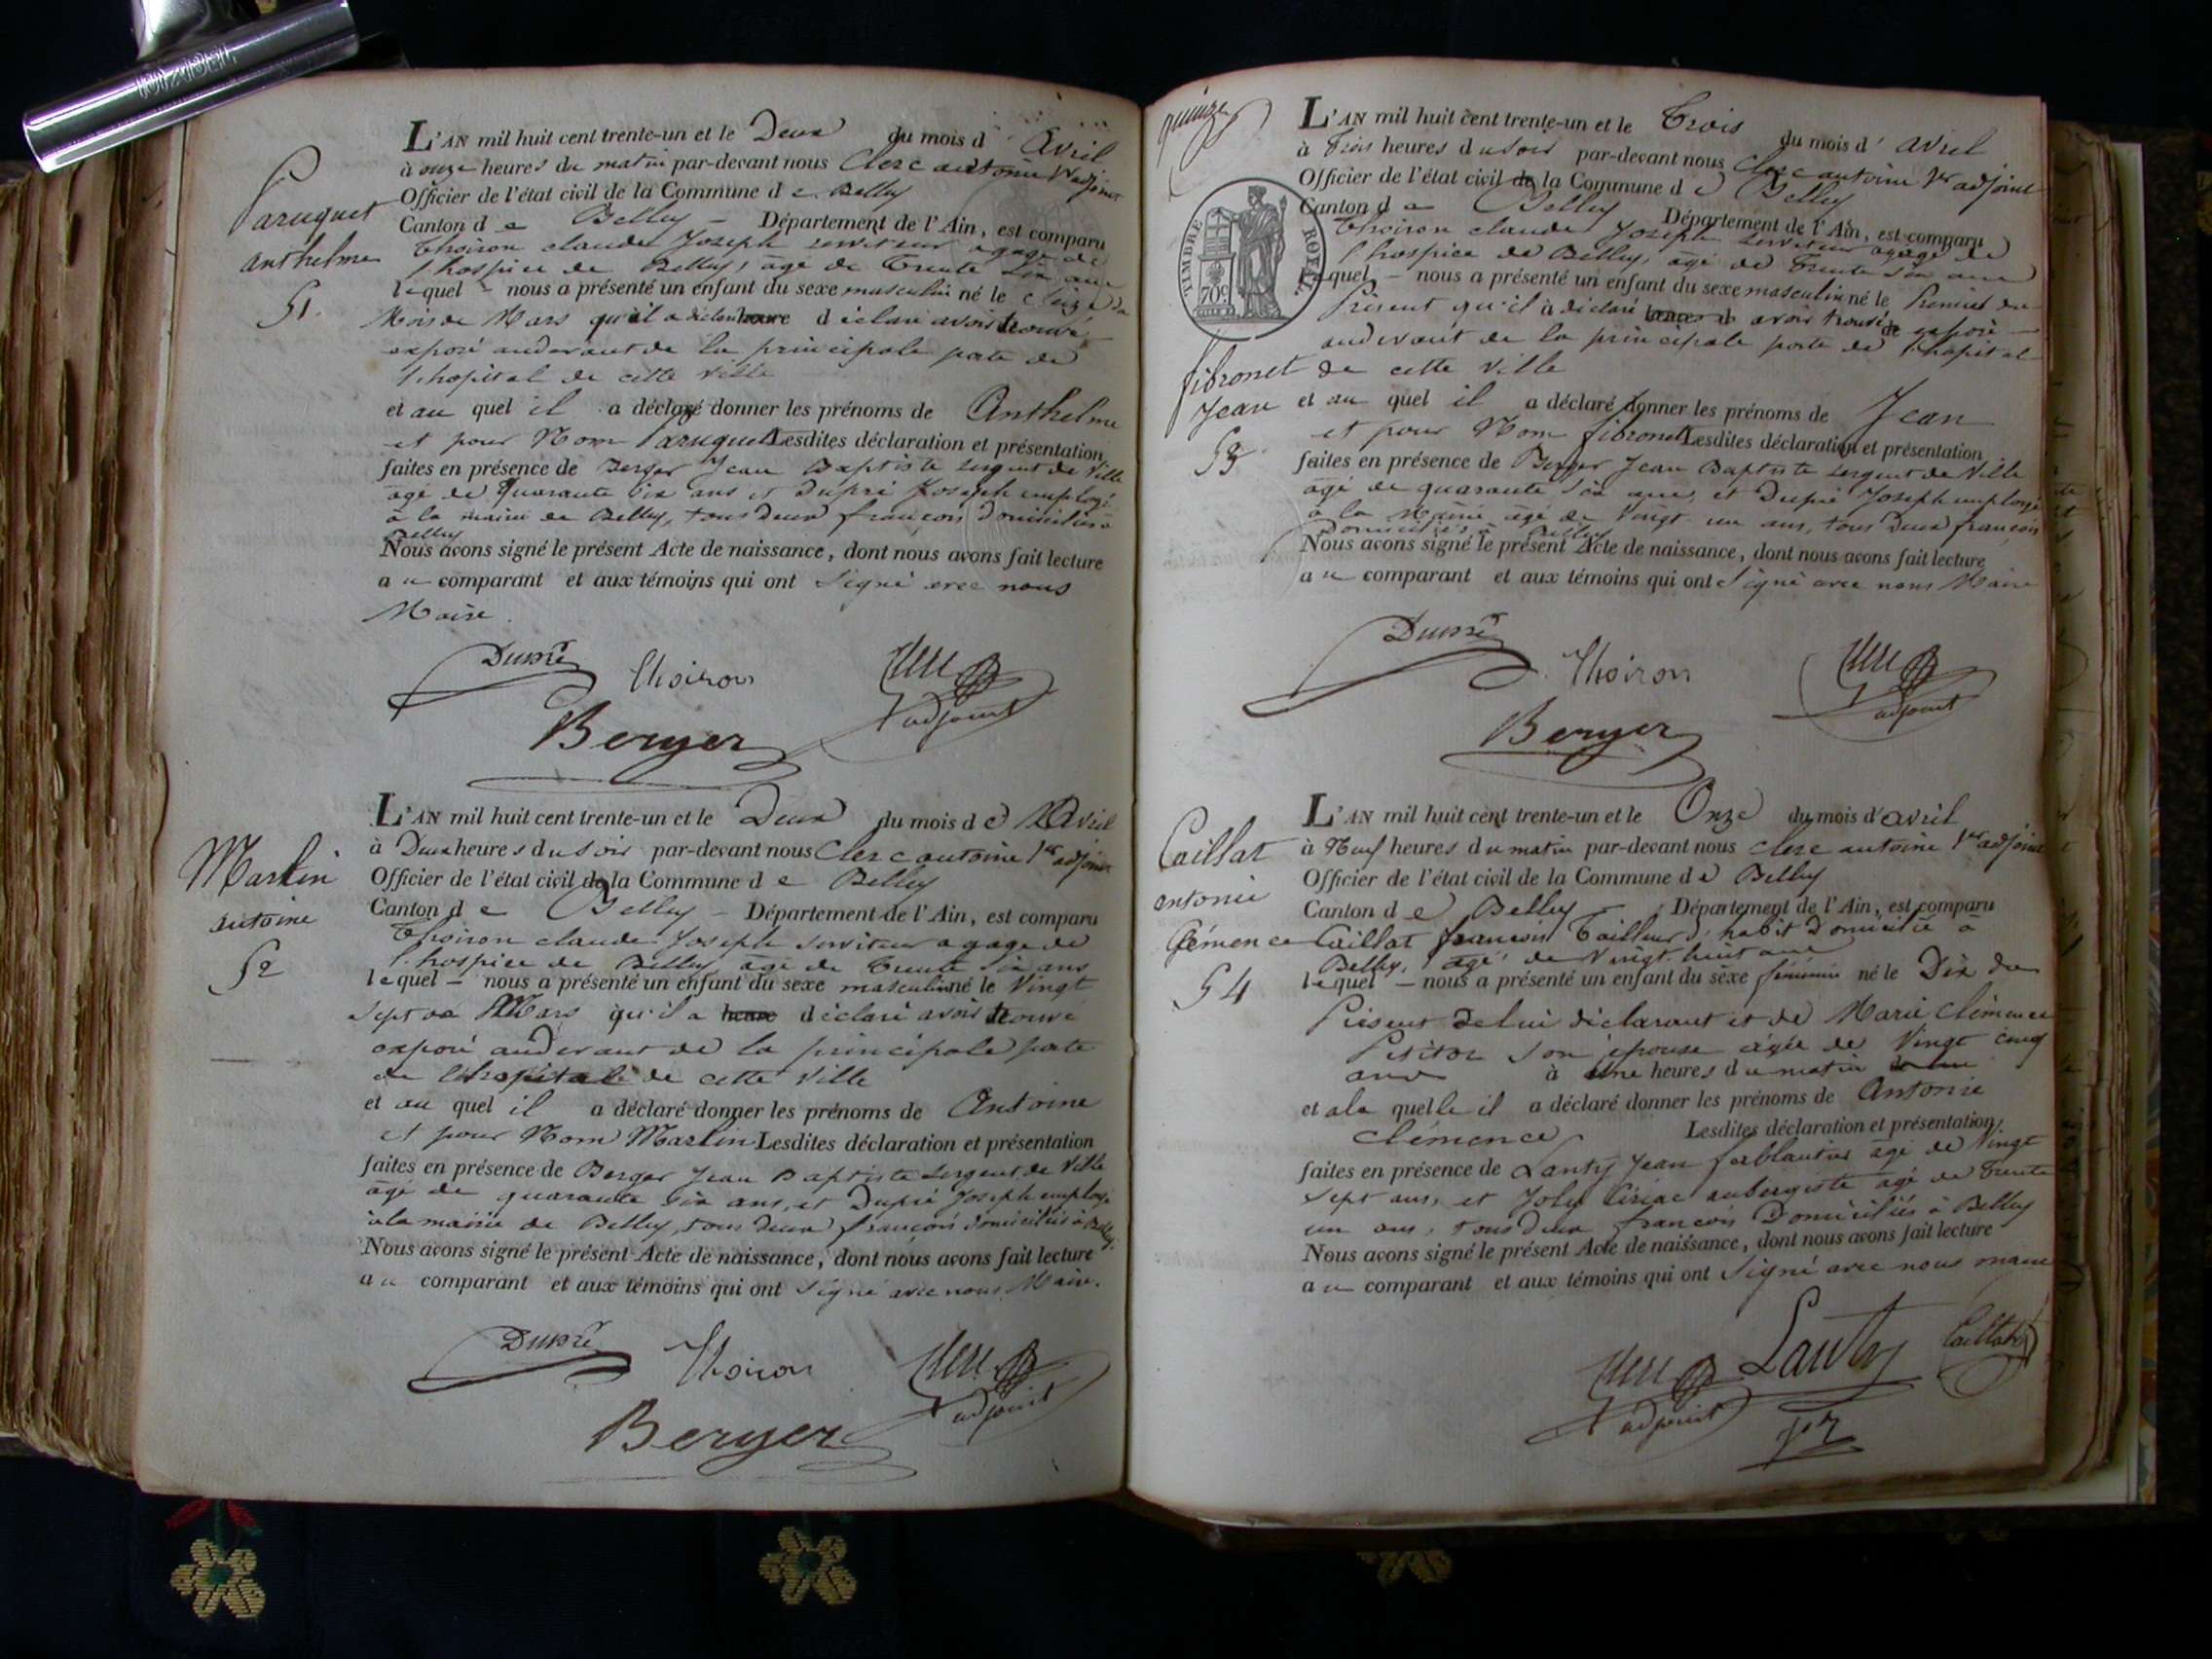 L'AN mil huit cent trente-un et le Deux du mois d'Avril
à onze heures du matin par-devant nous Clerc antoine 1er adjoint
Officier de l'état civil de la Commune de Belley
Canton de Belley - Département de l'Ain, est comparu
Thoiron claude Joseph serviteur a gage de
l'hospice de Belley, agé de Trente Six ans
lequel - nous a présenté un enfant du sexe masculin né le
Mois de Mars qu'il a déclaré avoir trouvé
exposé audevant de la principale porte de
l'hopital de cette Ville
et au quel il a déclaré donner les prénoms de Anthelme
et pour Nom Paruquet Lesdites déclaration et présentation
faites en présence de Berger Jean Baptiste sergent de Ville
agé de quarante Six ans et Dupré Joseph employé
a la mairie de Belley, tous deux françois Domiciliés à
Belley
Nous avons signé le présent Acte de naissance, dont nous avons fait lecture
au comparant et aux témoins qui ont Signé avec nous
Maire.
Paruquet
anthelme
51.
Dupré
Thoiron
Clerc
adjoint
Berger
L'AN mil huit cent trente-un et le Deux du mois de Avril
à Deux heures du Soir par-devant nous Clerc antoine 1er adjoint
Officier de l'état civil de la Commune de Belley
Canton de Belley - Département de l'Ain, est comparu
Thoiron claude Joseph serviteur a gage de
l'hospice de Belley agé de Trente Six ans
lequel - nous a présenté un enfant du sexe masculin né le Vingt
Sept de Mars qu'il a heure déclaré avoir trouvé
exposé audevant de la principale porte
de l'hopital de cette Ville
et au quel il a déclaré donner les prénoms de Antoine
et pour Nom Martin Lesdites déclaration et présentation
faites en présence de Berger Jean Baptiste sergent de Ville
agé de quarante Six ans, et Dupré Joseph employé
à la mairie de Belley, tous deux françois domiciliés à Belley.
Nous avons signé le présent Acte de naissance, dont nous avons fait lecture
au comparant et aux témoins qui ont Signé avec nous Maire.
Martin
antoine
52
Dupré
Thoiron
Clerc
adjoint
Berger
quinze
TIMBRE ROYAL
70c
L'AN mil huit cent trente-un et le Trois du mois d'avril
à Trois heures du Soir par-devant nous Clerc antoine 1er adjoint
Officier de l'état civil de la Commune de Belley
Canton de Belley Département de l'Ain, est comparu
Thoiron claude Joseph serviteur agage de
l'hospice de Belley, agé de Trente Six ans
lequel - nous a présenté un enfant du sexe masculin né le Premier du
Présent qu'il à déclaré avoir trouvé exposé
audevant de la principale porte de l'hopital
de cette Ville
et au quel il a déclaré donner les prénoms de Jean
et pour Nom fibronet Lesdites déclaration et présentation
faites en présence de Berger Jean Baptiste sergent de Ville
agé de quarante Six ans, et Dupré Joseph employé
a la Mairie agé de Vingt un ans, tous Deux françois
Domiciliés à Belley
Nous avons signé le présent Acte de naissance, dont nous avons fait lecture
au comparant et aux témoins qui ont Signé avec nous Maire
fibronet
Jean
53
Dupré
Thoiron
Clerc
adjoint
Berger
L'AN mil huit cent trente-un et le Onze du mois d'avril
à Neuf heures du matin par-devant nous clerc antoine 1er adjoint
Officier de l'état civil de la Commune de Belley
Canton de Belley - Département de l'Ain, est comparu
Caillat françois Tailleur d'habit Domicilié à
Belley, agé de Vingt huit ans
lequel - nous a présenté un enfant du sexe féminin né le Dix du
Présent de lui déclarant et de Marie Clémence
son épouse agée de Vingt cinq
ans à Une heures du matin
et a la quelle il a déclaré donner les prénoms de Antonie
Clémence Lesdites déclaration et présentation
faites en présence de Lanty Jean ferblantier agé de Vingt
Sept ans, et Joly Ciriac aubergiste agé de Trente
un ans, tous Deux françois Domiciliés à Belley
Nous avons signé le présent Acte de naissance, dont nous avons fait lecture
au comparant et aux témoins qui ont Signé avec nous maire
Caillat
antonie
Clémence
54
Clerc
adjoint
Lanty
Caillat